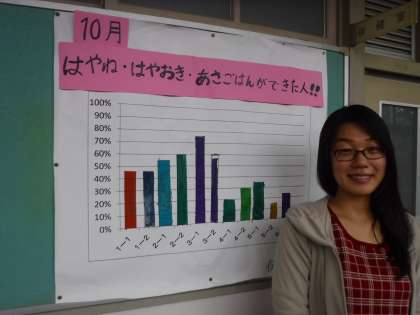 10月
はやね・はやおき・あさごはんができた人!!
100%
90%
80%
70%
60%
50%
40%
30%
20%
10%
0%
1-1
1-2
2-1
2-2
3-1
3-2
4-1
4-2
5-1